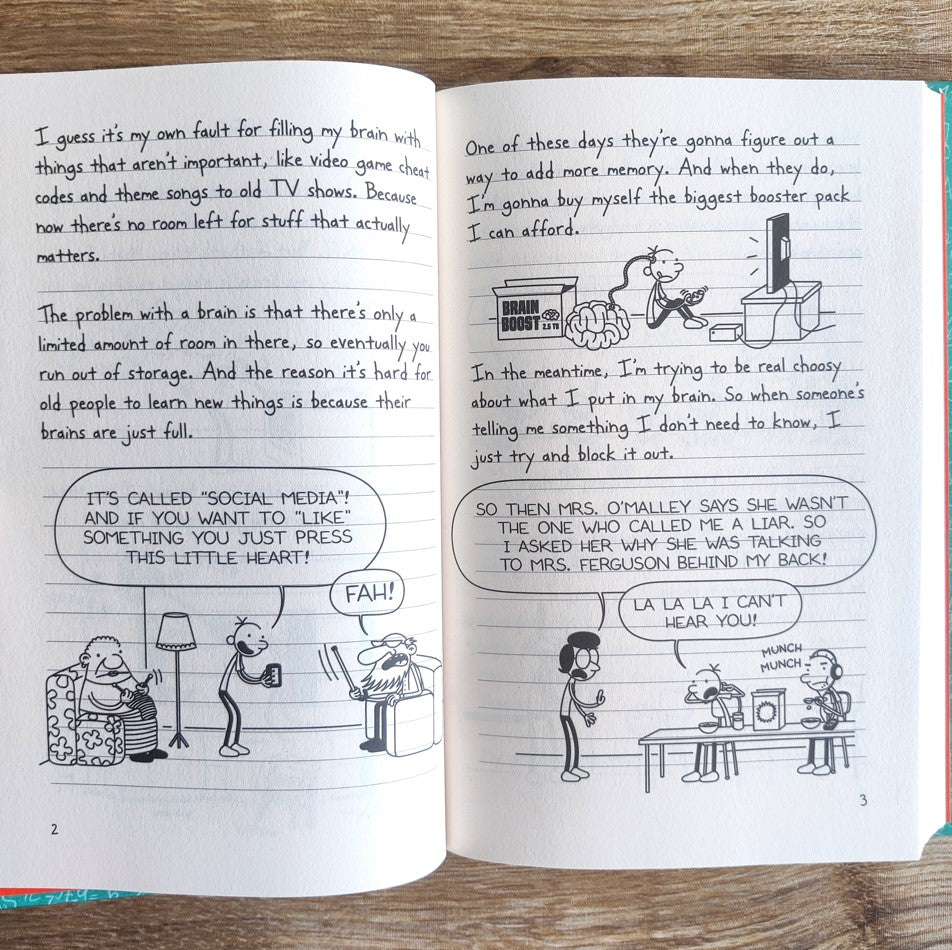 I guess it's my own fault for filling my brain with
things that aren't important, like video game cheat
codes and theme songs to old TV shows. Because
now there's no room left for stuff that actually
matters.
The problem with a brain is that there's only a
limited amount of room in there, so eventually you
run out of storage. And the reason it's hard for
old people to learn new things is because their
brains are just full.
IT'S CALLED "SOCIAL MEDIA"!
AND IF YOU WANT TO "LIKE"
SOMETHING YOU JUST PRESS
THIS LITTLE HEART!
FAH!
2
One of these days they're gonna figure out a
way to add more memory. And when they do,
I'm gonna buy myself the biggest booster pack
I can afford.
BRAIN
BOOST 2.5 TB
In the meantime, I'm trying to be real choosy
about what I put in my brain. So when someone's
telling me something I don't need to know, I
just try and block it out.
SO THEN MRS. O'MALLEY SAYS SHE WASN'T
THE ONE WHO CALLED ME A LIAR. SO
I ASKED HER WHY SHE WAS TALKING
TO MRS. FERGUSON BEHIND MY BACK!
LA LA LA I CAN'T
HEAR YOU!
MUNCH
MUNCH
3